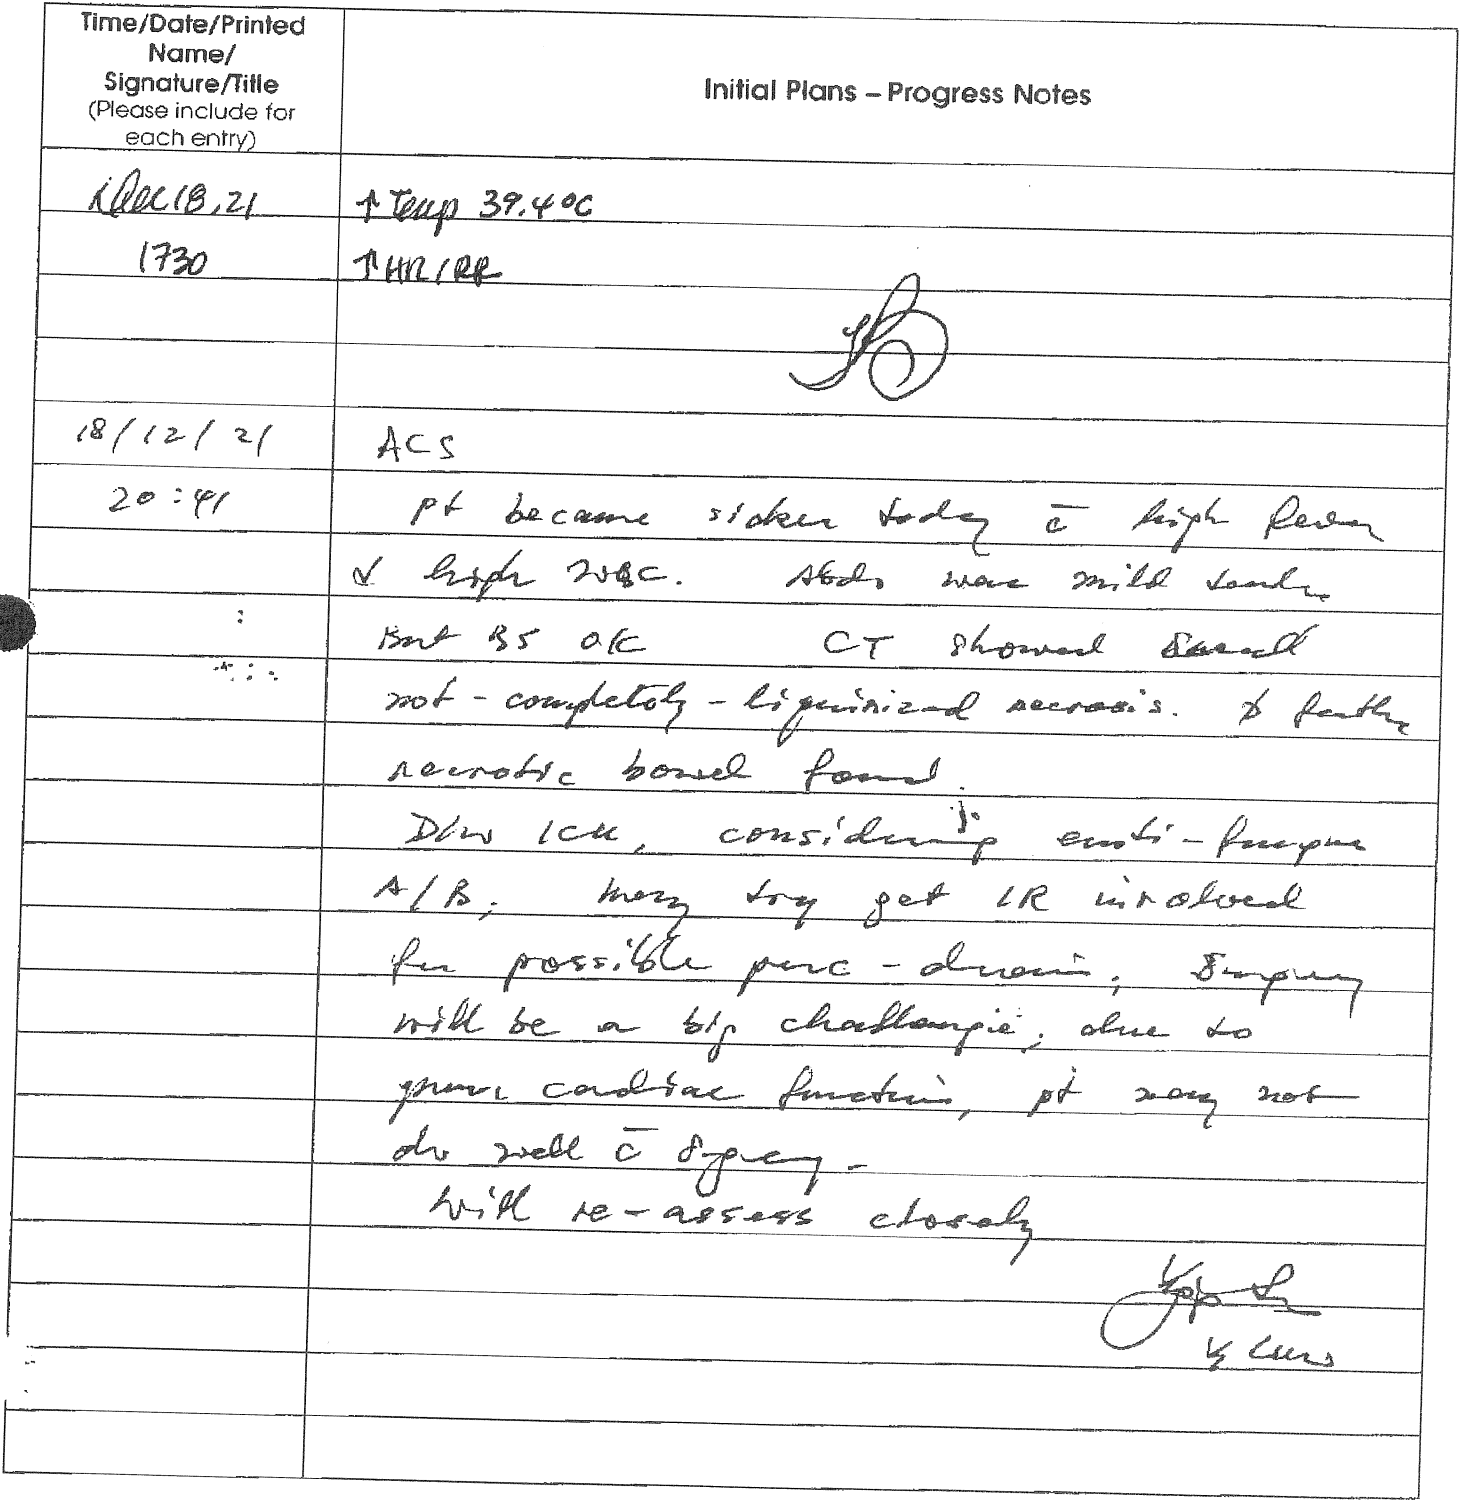 Time/Date/Printed
Name/
Signature/Title
(Please include for
each entry)
Initial Plans – Progress Notes
Dec 18.21 ↑Temp 39.4°C
1730 ↑HR/RR
18/12/21 ACS
20:41 pt became sicker today c̄ high fever
& high WBC. Abdo was mild tender
But BS OK CT showed small
not-completely-liquinized necrosis.
necrotic bowel found.
D/W ICU, considering anti-fungus
A/B; may try get IR involved
for possible perc-drain; Surgery
will be a big challenge; due to
poor cardiac function, pt may not
do well c̄ Surgery.
Will re-assess closely